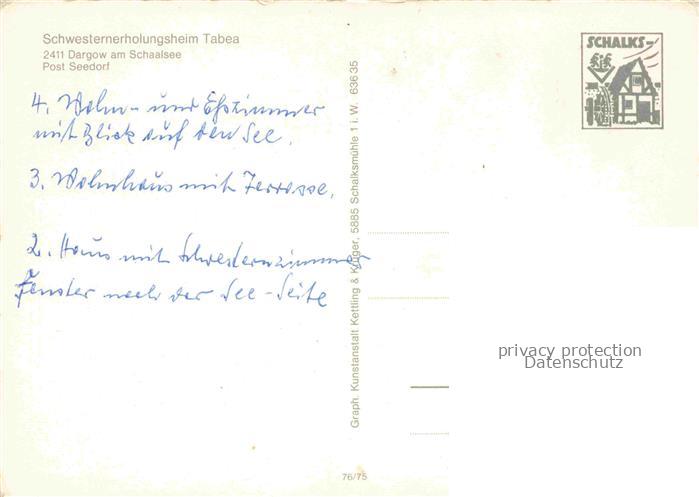 Schwesternerholungsheim Tabea
2411 Dargow am Schaalsee
Post Seedorf
4. Wohn- und Eßzimmer
mit Blick auf den See.
3. Wohnhaus mit Terrasse.
2. Haus mit Schwesternzimmer
Fenster nach der See-Seite
Graph. Kunstanstalt Kettling & Krüger, 5885 Schalksmühle 1 i. W. 63635
SCHALKS-
privacy protection
Datenschutz
76/75